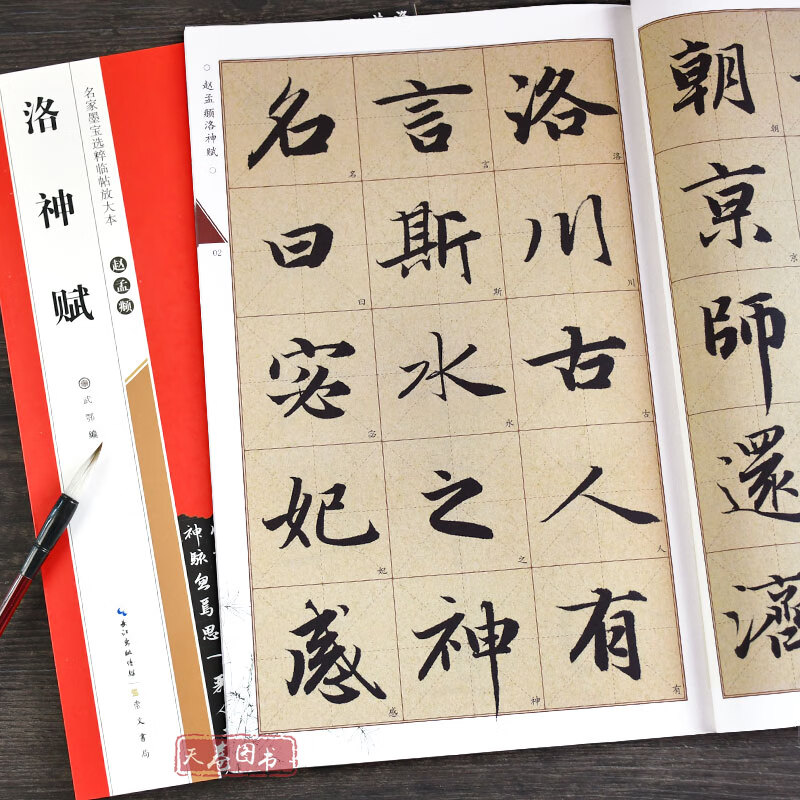 洛神赋
名家墨宝选粹临帖放大本
赵孟頫
武鄂 编
长江出版传媒
崇文书局
神
○赵孟頫洛神赋○
02
朝
京
師
還
濟
洛川古人有
言斯水之神
名曰宓妃感
洛
川
古
人
有
言
斯
水
之
神
名
曰
宓
妃
感
朝
京
天卷图书